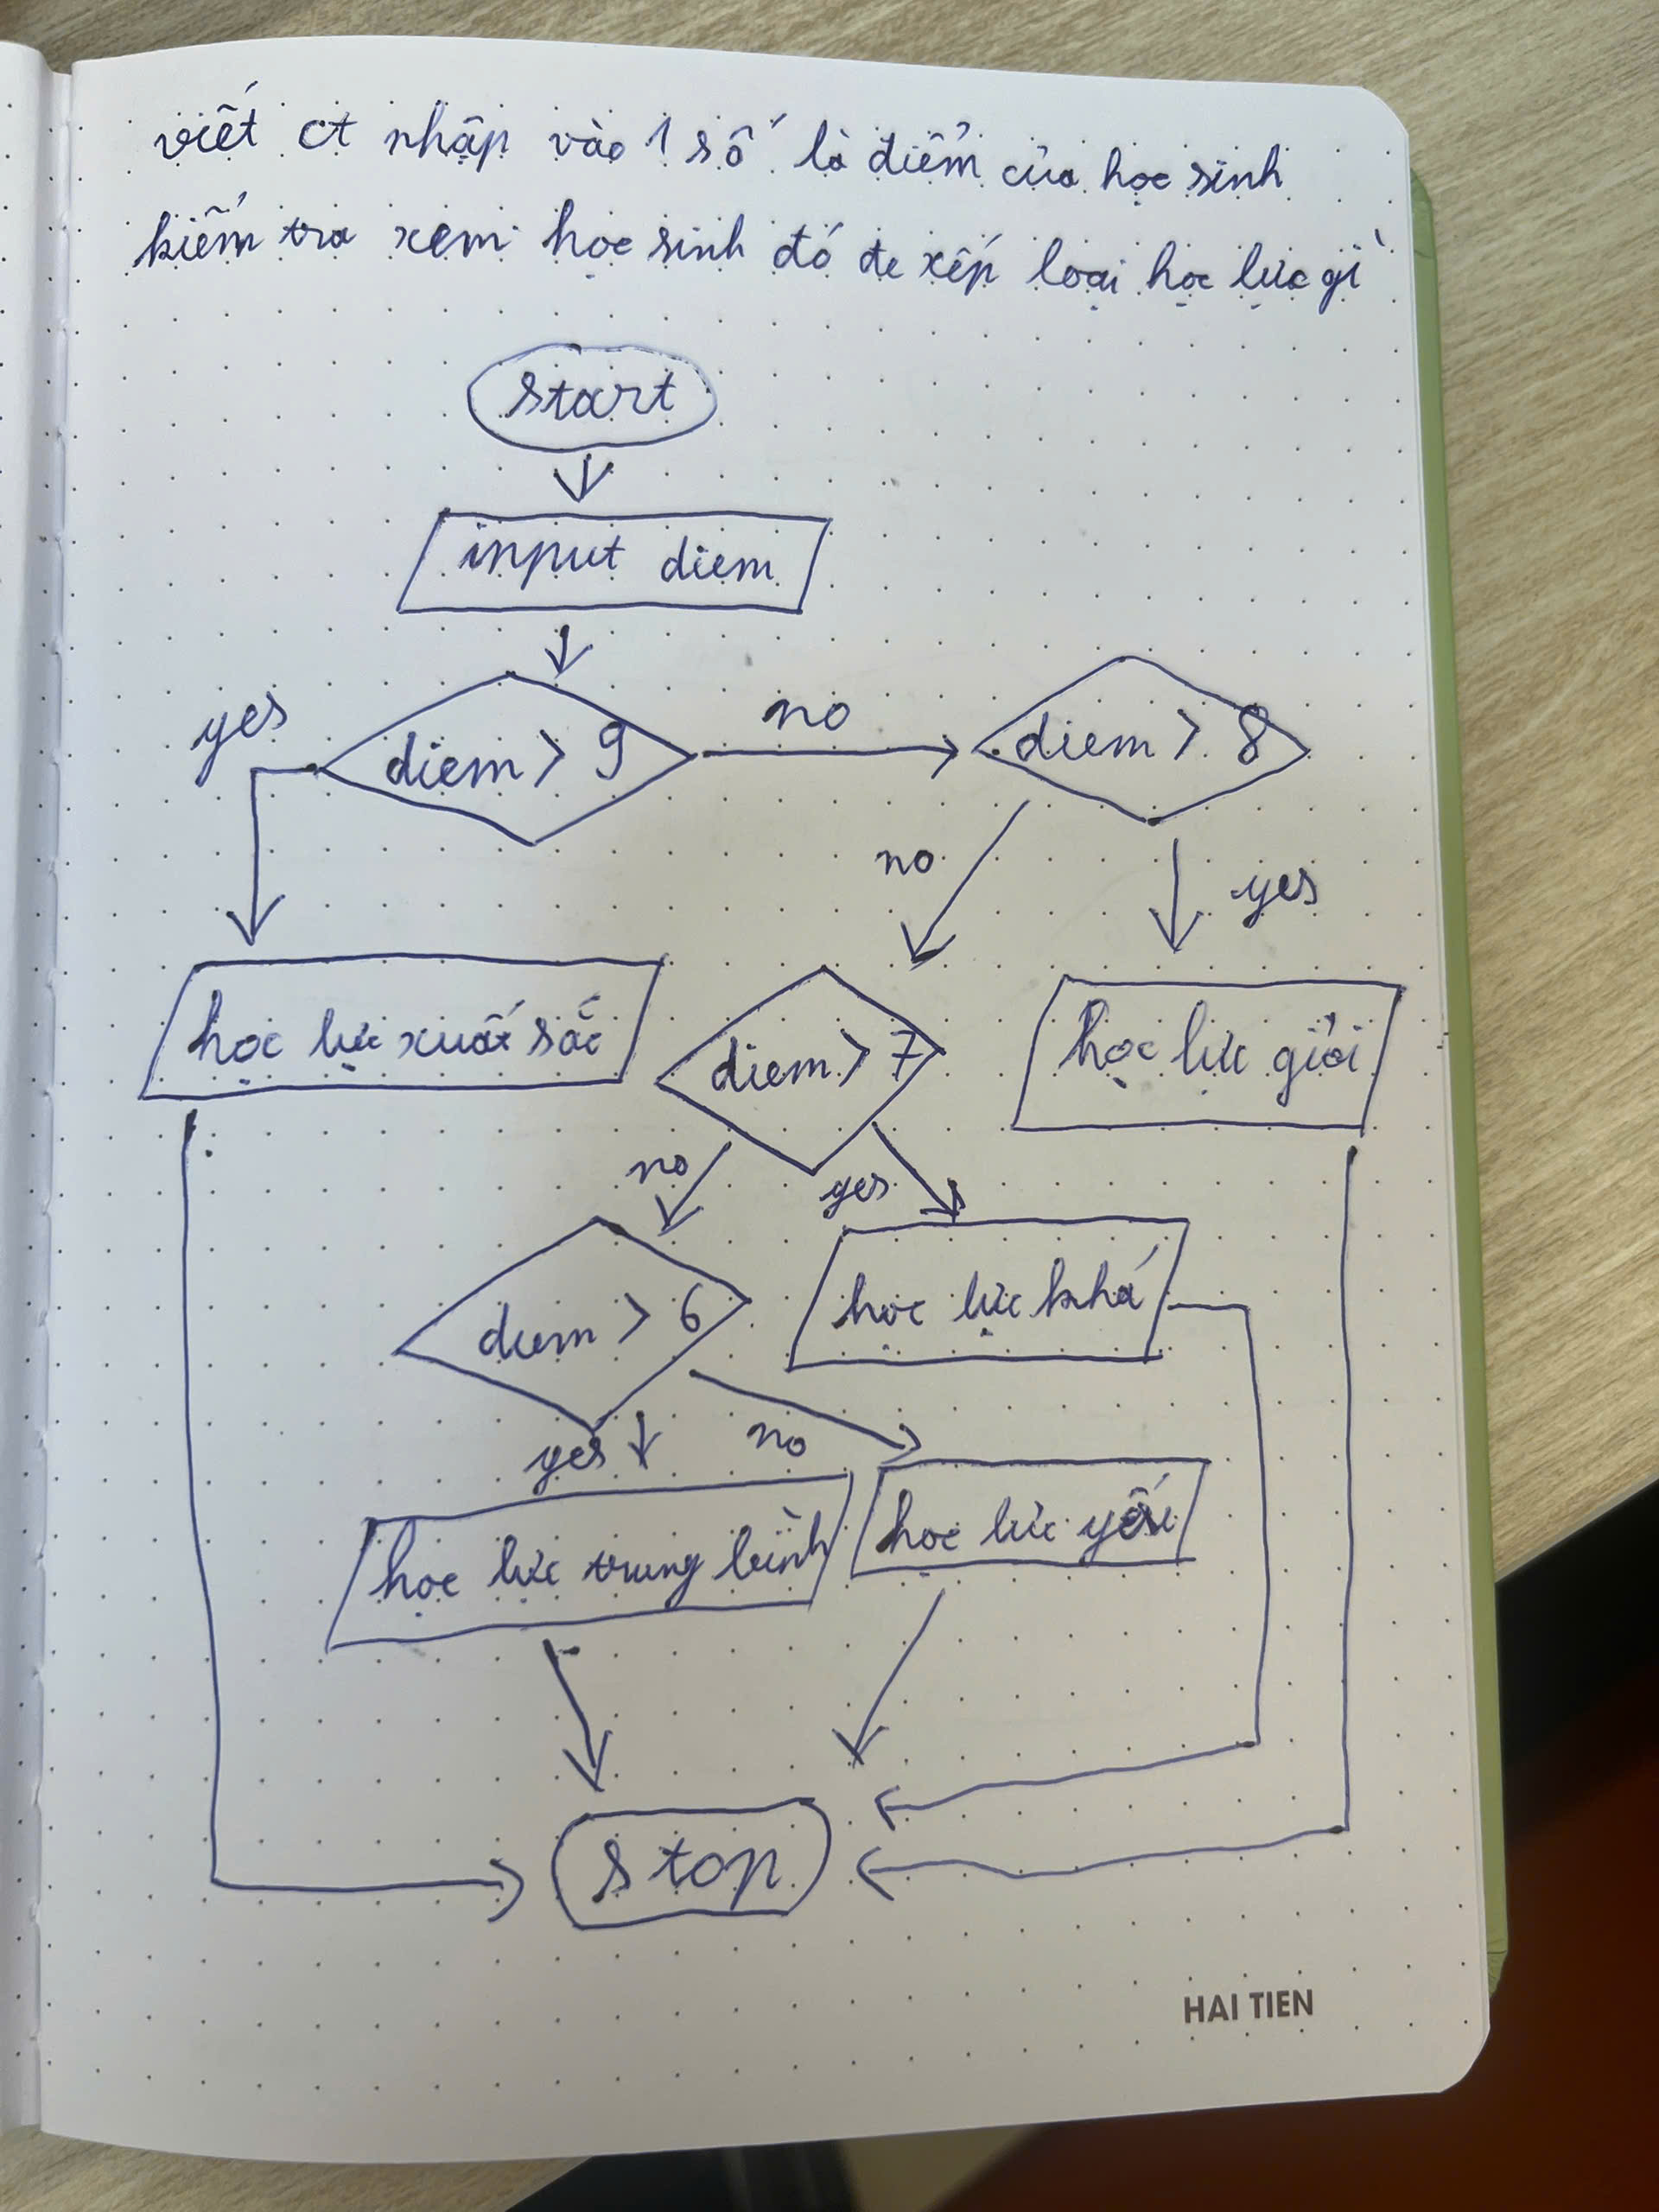 viết ct nhập vào 1 số là điểm của học sinh
kiểm tra xem học sinh đó đc xếp loại học lực gì
start
input diem
yes
diem > 9
no
diem > 8
no
yes
học lực xuất sắc
diem > 7
học lực giỏi
no
yes
diem > 6
học lực khá
yes
no
học lực trung bình
học lực yếu
stop
HAI TIEN